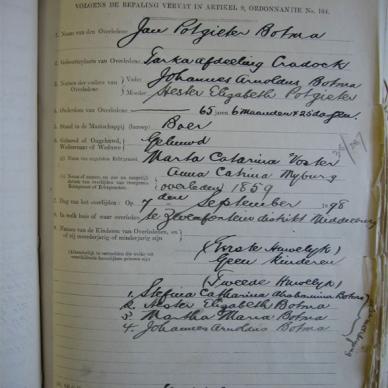 VOLGENS DE BEPALING VERVAT IN ARTIKEL 9, ORDONNANTIE No. 104.
1. Naam van den Overledene: Jan Potgieter Botma
2. Geboorteplaats van Overledene: Tarka afdeeling Cradock
3. Namen der ouders van Overledene: Vader: Johannes Arnoldus Botma
Moeder: Hester Elizabeth Potgieter
4. Ouderdom van Overledene: 65 jaren 6 maanden 25 dagen
5. Stand in de Maatschappij (beroep): Boer
6. Gehuwd of Ongehuwd, Weduwnaar of Weduwe: Gehuwd
Marta Catarina
Anna Catrina Myburg
(overleden) 1859
7. Dag van het overlijden: Op 7 den September 1898
8. In welk huis of waar overleden: te distrikt Middelburg
9. Namen der Kinderen van Overledene, en of zij meerderjarig of minderjarig zijn
(Eerste Huwelyk)
Geen kinderen
(Tweede Huwelyk)
1. Stefina Catharina Botma
2. Hester Elizabeth Botma
3. Martha Maria Botma
4. Johannes Arnoldus Botma